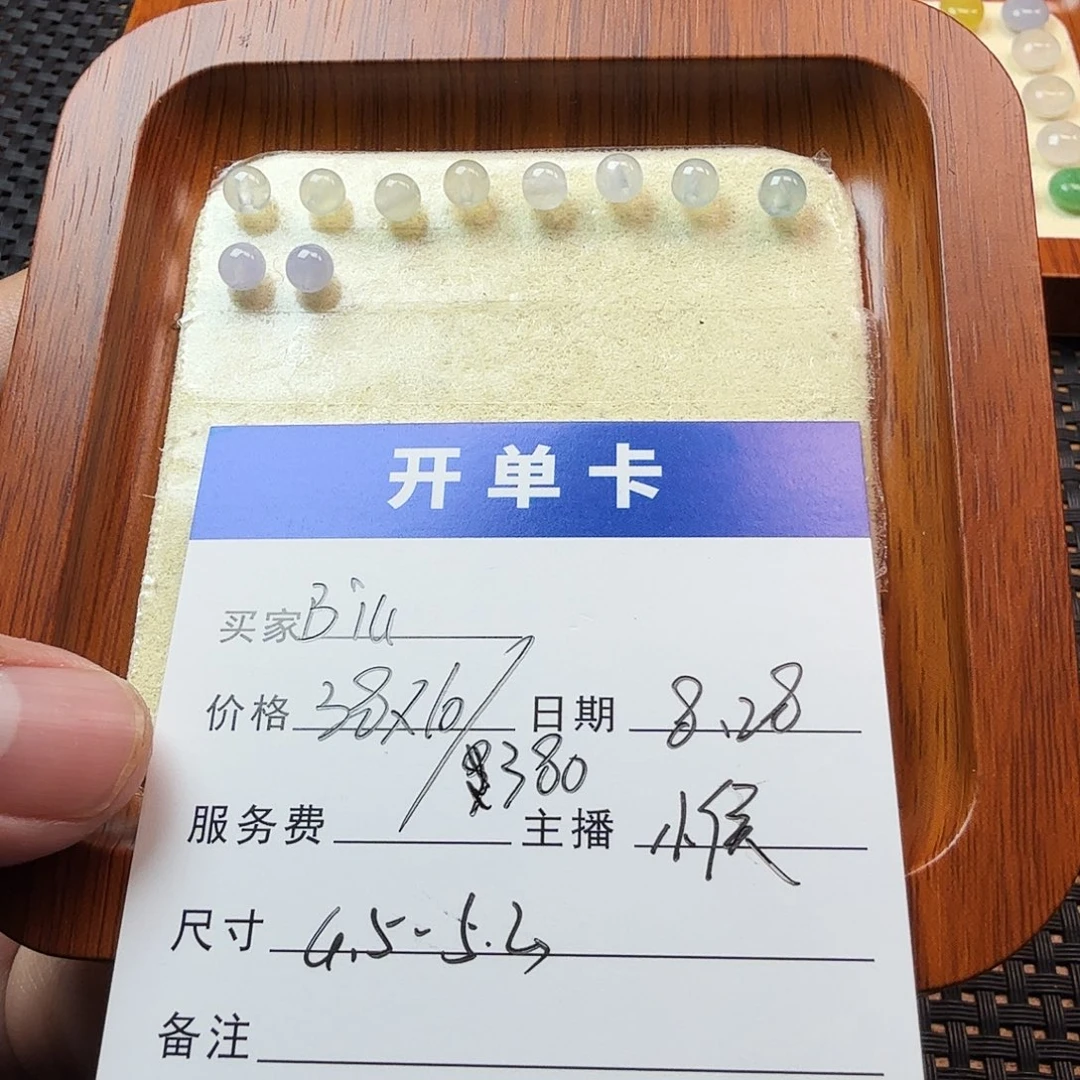 开单卡
买家 Biu
价格 38x10 日期 8.28
380
服务费 主播 小侯
尺寸 4.5-5.2
备注